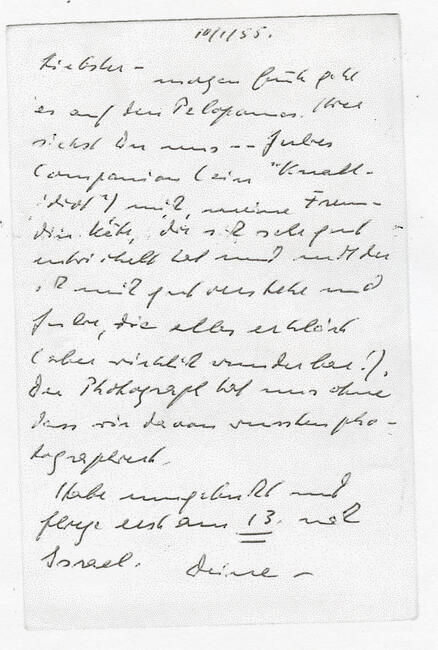 10/1/55.
Liebster – morgen früh geht
es auf den Peloponnes. Hier
siehst Du uns -- Jules
Companion (ein "Knall-
idiot") mit, meine Freun-
din Käte, die sich sehr gut
entwickelt hat und mit der
ich mich gut verstehe und
Jule, die alles erklärt
(aber wirklich wunderbar!).
Der Photograph hat uns ohne
dass wir davon wussten pho-
tographiert.
Habe umgebucht und
fliege erst am 13. nach
Israel. Deine –